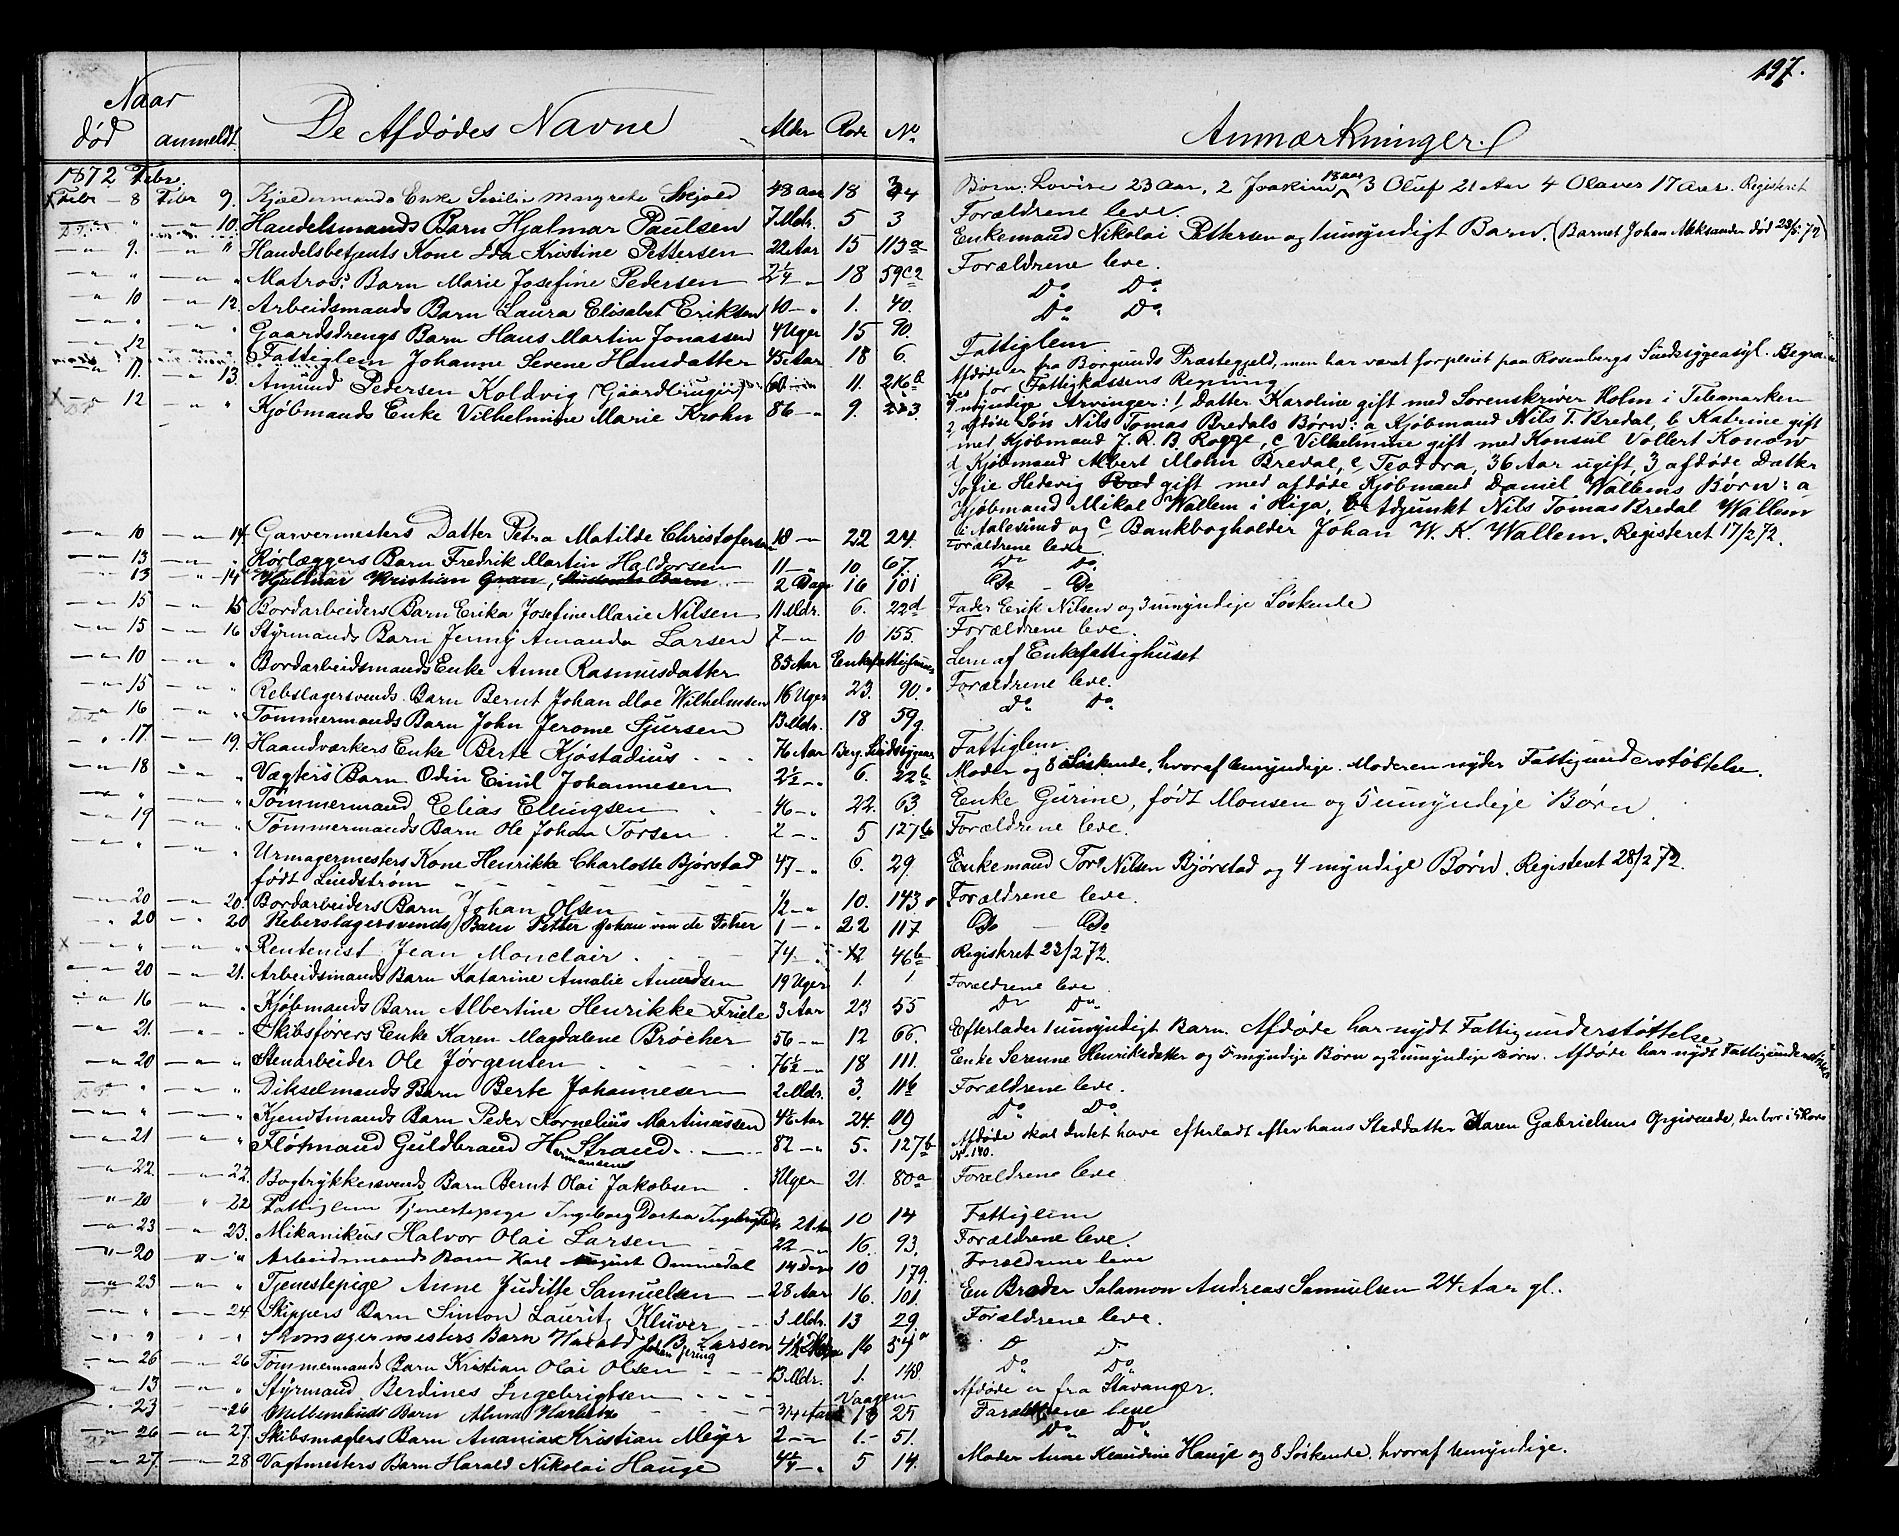 197.
Naar
død anmeldt. De Afdødes Navne Alder Rode No Anmærkninger.
1872 Febr.
Febr – 8 Febr 9. Kjældermands Enke Sesilie Margrete Skjold 48 Aar 18 34 Børn: Lovise 23 Aar, 2 Joakim 18 aar 3 Oluf 21 Aar 4 Olaves 17 Aar. Registeret
10. Handelsmands Barn Hjalmar Paulsen 7 Mdr. 5 3 Forældrene leve.
9. " Handelsbetjents Kone Ida Kristine Pettersen 22 Aar 15 113a Enkemand Nikolai Pettersen og 1 umyndigt Barn. (Barnet Johan Aleksander død 28/5 72)
" " Matros: Barn Marie Josefine Pedersen 2¼ – " 18 59c2 Forældrene leve.
10 12. Arbeidsmands Barn Laura Elisabet Eriksen 10 – " 1. 40. Do Do
" " Gaardsdrengs Barn Hans Martin Jonassen 4 Uger 15 90. Do Do
12 " Fattiglem Johanne Serene Hansdatter 45 Aar 18 6. Fattiglem
11. 13. Amund Pedersen Koldvig (Gaardbruger) 60 11. 216b Afdøde er fra Borgunds Præstegjeld, men har været forpleiet paa Rosenbergs Sindssygeasyl. Begra-
ves for Fattigkassens Regning
12 " Kjøbmands Enke Vilhelmine Marie Krohn 86 – " 9. 223. 9 myndige Arvinger: 1 Datter Karoline gift med Sorenskriver Holm i Telemarken
2 afdøde Søn Nils Tomas Bredals Børn: a Kjøbmand Nils T. Bredal, b Katrine gift
med Kjøbmand J. R. B. Rogge, c Vilhelmine gift med Konsul Vollert Konow
d Kjøbmand Albert Mohn Bredal, e Teodora, 36 Aar ugift, 3 afdøde Datter
Sofie Hedevig gift med afdøde Kjøbmand Daniel Wallems Børn: a
Kjøbmand Mikal Wallem i Riga, b Adjunkt Nils Tomas Bredal Wallem
i Aalesund og c Bankbogholder Johan W. K. Wallem. Registeret 17/2 72.
10 14. Garvermesters Datter Petra Matilde Christofersen 18 – 22 24. Forældrene leve
13 " Rørlæggers Barn Fredrik Martin Haldorsen 11 – " 10 67. Do Do
13 14 Hjalmar Kristian Gran, Barn 2 Dage 16 101 Do Do
15 15 Bordarbeiders Barn Erika Josefine Marie Nilsen 11 Mdr. 6. 22d Fader Erik Nilsen og 3 umyndige Søskende
15 16 Styrmands Barn Jenny Amanda Larsen 7 – " 10 155. Forældrene leve.
10 " Bordarbeidsmands Enke Anne Rasmusdatter 85 Aar Enkefattighuset Lem af Enkefattighuset
15 " Rebslagersvends Barn Bernt Johan Wilhelmsen 16 Uger 23. 90. Forældrene leve.
16 " Tømmermands Barn John Jerome Sjursen 13 Mdr. 18 59g Do Do
17. 19. Haandværkers Enke Berte Kjøstadius 76 Aar Berg. Sindssygeas. Fattiglem.
18 " Vægters Barn Odin Emil Johannesen 2½ – " 6. 22b Moder og 8 Søskende, hvoraf umyndige. Moderen nyder Fattigunderstøttelse.
" " Tømmermand Elias Ellingsen 46 – " 22. 63 Enke Gurine, født Monsen og 5 umyndige Børn
19 " Tømmermands Barn Ole Johan Torsen 2 – " 5 127b Forældrene leve.
" " Urmagermesters Kone Henrikke Charlotte Bjørstad 47 – " 6. 29. Enkemand Tore Nilsen Bjørstad og 4 myndige Børn. Registeret 28/2 72.
født Lindstrøm
20 20. Bordarbeiders Barn Johan Olsen ½ – " 10. 143 Forældrene leve.
20 20 Reberslagersvends Barn Petter Johan von de Feher 1 – " 22 117 Do – Do
" " Rentenist Jean Monclair 74 – 12 46b Registret 23/2 72.
20 21. Arbeidsmands Barn Katarine Amalie Amundsen 19 Uger 1. 1 Forældrene leve.
16 " Kjøbmands Barn Albertine Henrikke Friele 3 Aar 23 55 Do Do
21. " Skibsførers Enke Karen Magdalene Brøcher 56 – " 12 66. Efterlader 1 umyndigt Barn. Afdøde har nydt Fattigunderstøttelse
20 " Stenarbeider Ole Jørgensen 76½ – " 18 111. Enke Serenne Henriksdatter og 5 myndige Børn og 2 umyndige Børn. Afdøde har nydt Fattigunderstøttelse
" " Dikselmands Barn Berte Johannesen 2 Mdr. 3. 11b Forældrene leve.
" " Kjendtmands Barn Peder Kornelius Martinussen 4½ Aar 24. 119 Do Do
21 " Fløtmand Guldbrand H Strand 82 – " 5. 127b Afdøde skal Intet have efterladt efter hans Steddatter Karen Gabrielsens Opgivende, der bor i 5 Rode
Hermansens No 140.
22 22. Bogtrykkersvends Barn Bernt Olai Jakobsen Uger 21. 80a Forældrene leve
20 22 Fattiglem Tjenestepige Ingeborg Dortea Ingebrigtsd. 21 Aar 10 14 Fattiglem
23 23. Mikanikus Halvor Olai Larsen 22 – " 16. 93. Forældrene leve.
20 " Arbeidsmands Barn Karl August Ommedal 14 Dage 10 179. Forældrene leve
23 " Tjenestepige Anne Juditte Samuelsen 28 Aar 16. 101. En Broder Salamon Andreas Samuelsen 24 Aar gl.
" 24 Skippers Barn Simon Lauritz Klüver 3 Mdr. 13 29. Forældrene leve.
" " Skomagermesters Barn Harald Johan B. Larsen 16 54a Do Do
26 26 Tømmermands Barn Kristian Olai Olsen 13 Mdr. 1. 148. Do Do
13 " Styrmand Berdines Ingebrigtsen Vaagen Afdøde er fra Stavanger.
23 26 Barn Alma 3/4 Aar 13 25 Forældrene leve
26 27. Skibsmæglers Barn Ananias Kristian Meyer 2 – " 1. 51. Do Do
27 28 Vagtmesters Barn Harald Nikolai Hauge 4¼ – " 5 14. Moder Anne Klaudine Hauge og 8 Søskende, hvoraf umyndige.